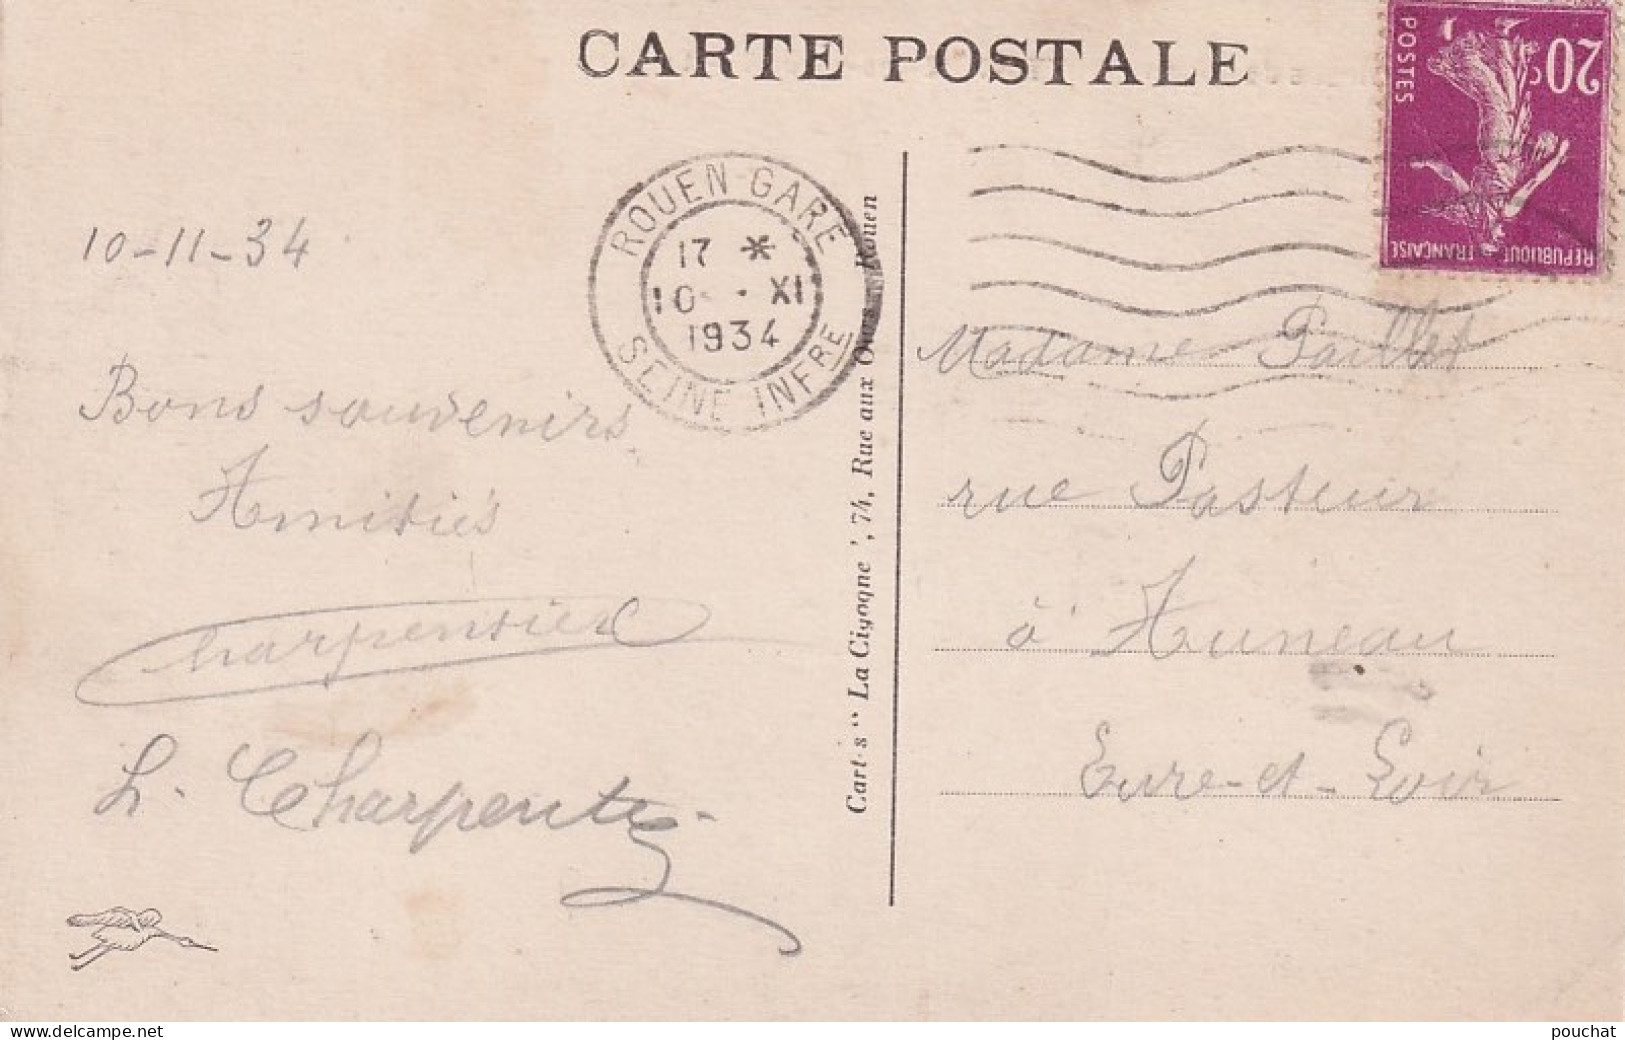 CARTE POSTALE
20c
POSTES
REPUBLIQUE FRANÇAISE
ROUEN-GARE
17 *
10 · XI
1934
SEINE INFRE
10-11-34
Bons souvenirs
Amitiés
Charpentier
h. Charpentier
Cart s " La Cigogne ', 74, Rue aux Ours, Rouen
Madame Paillet
rue Pasteur
à Auneau
Eure-et-Loir
www.delcampe.net
pouchat